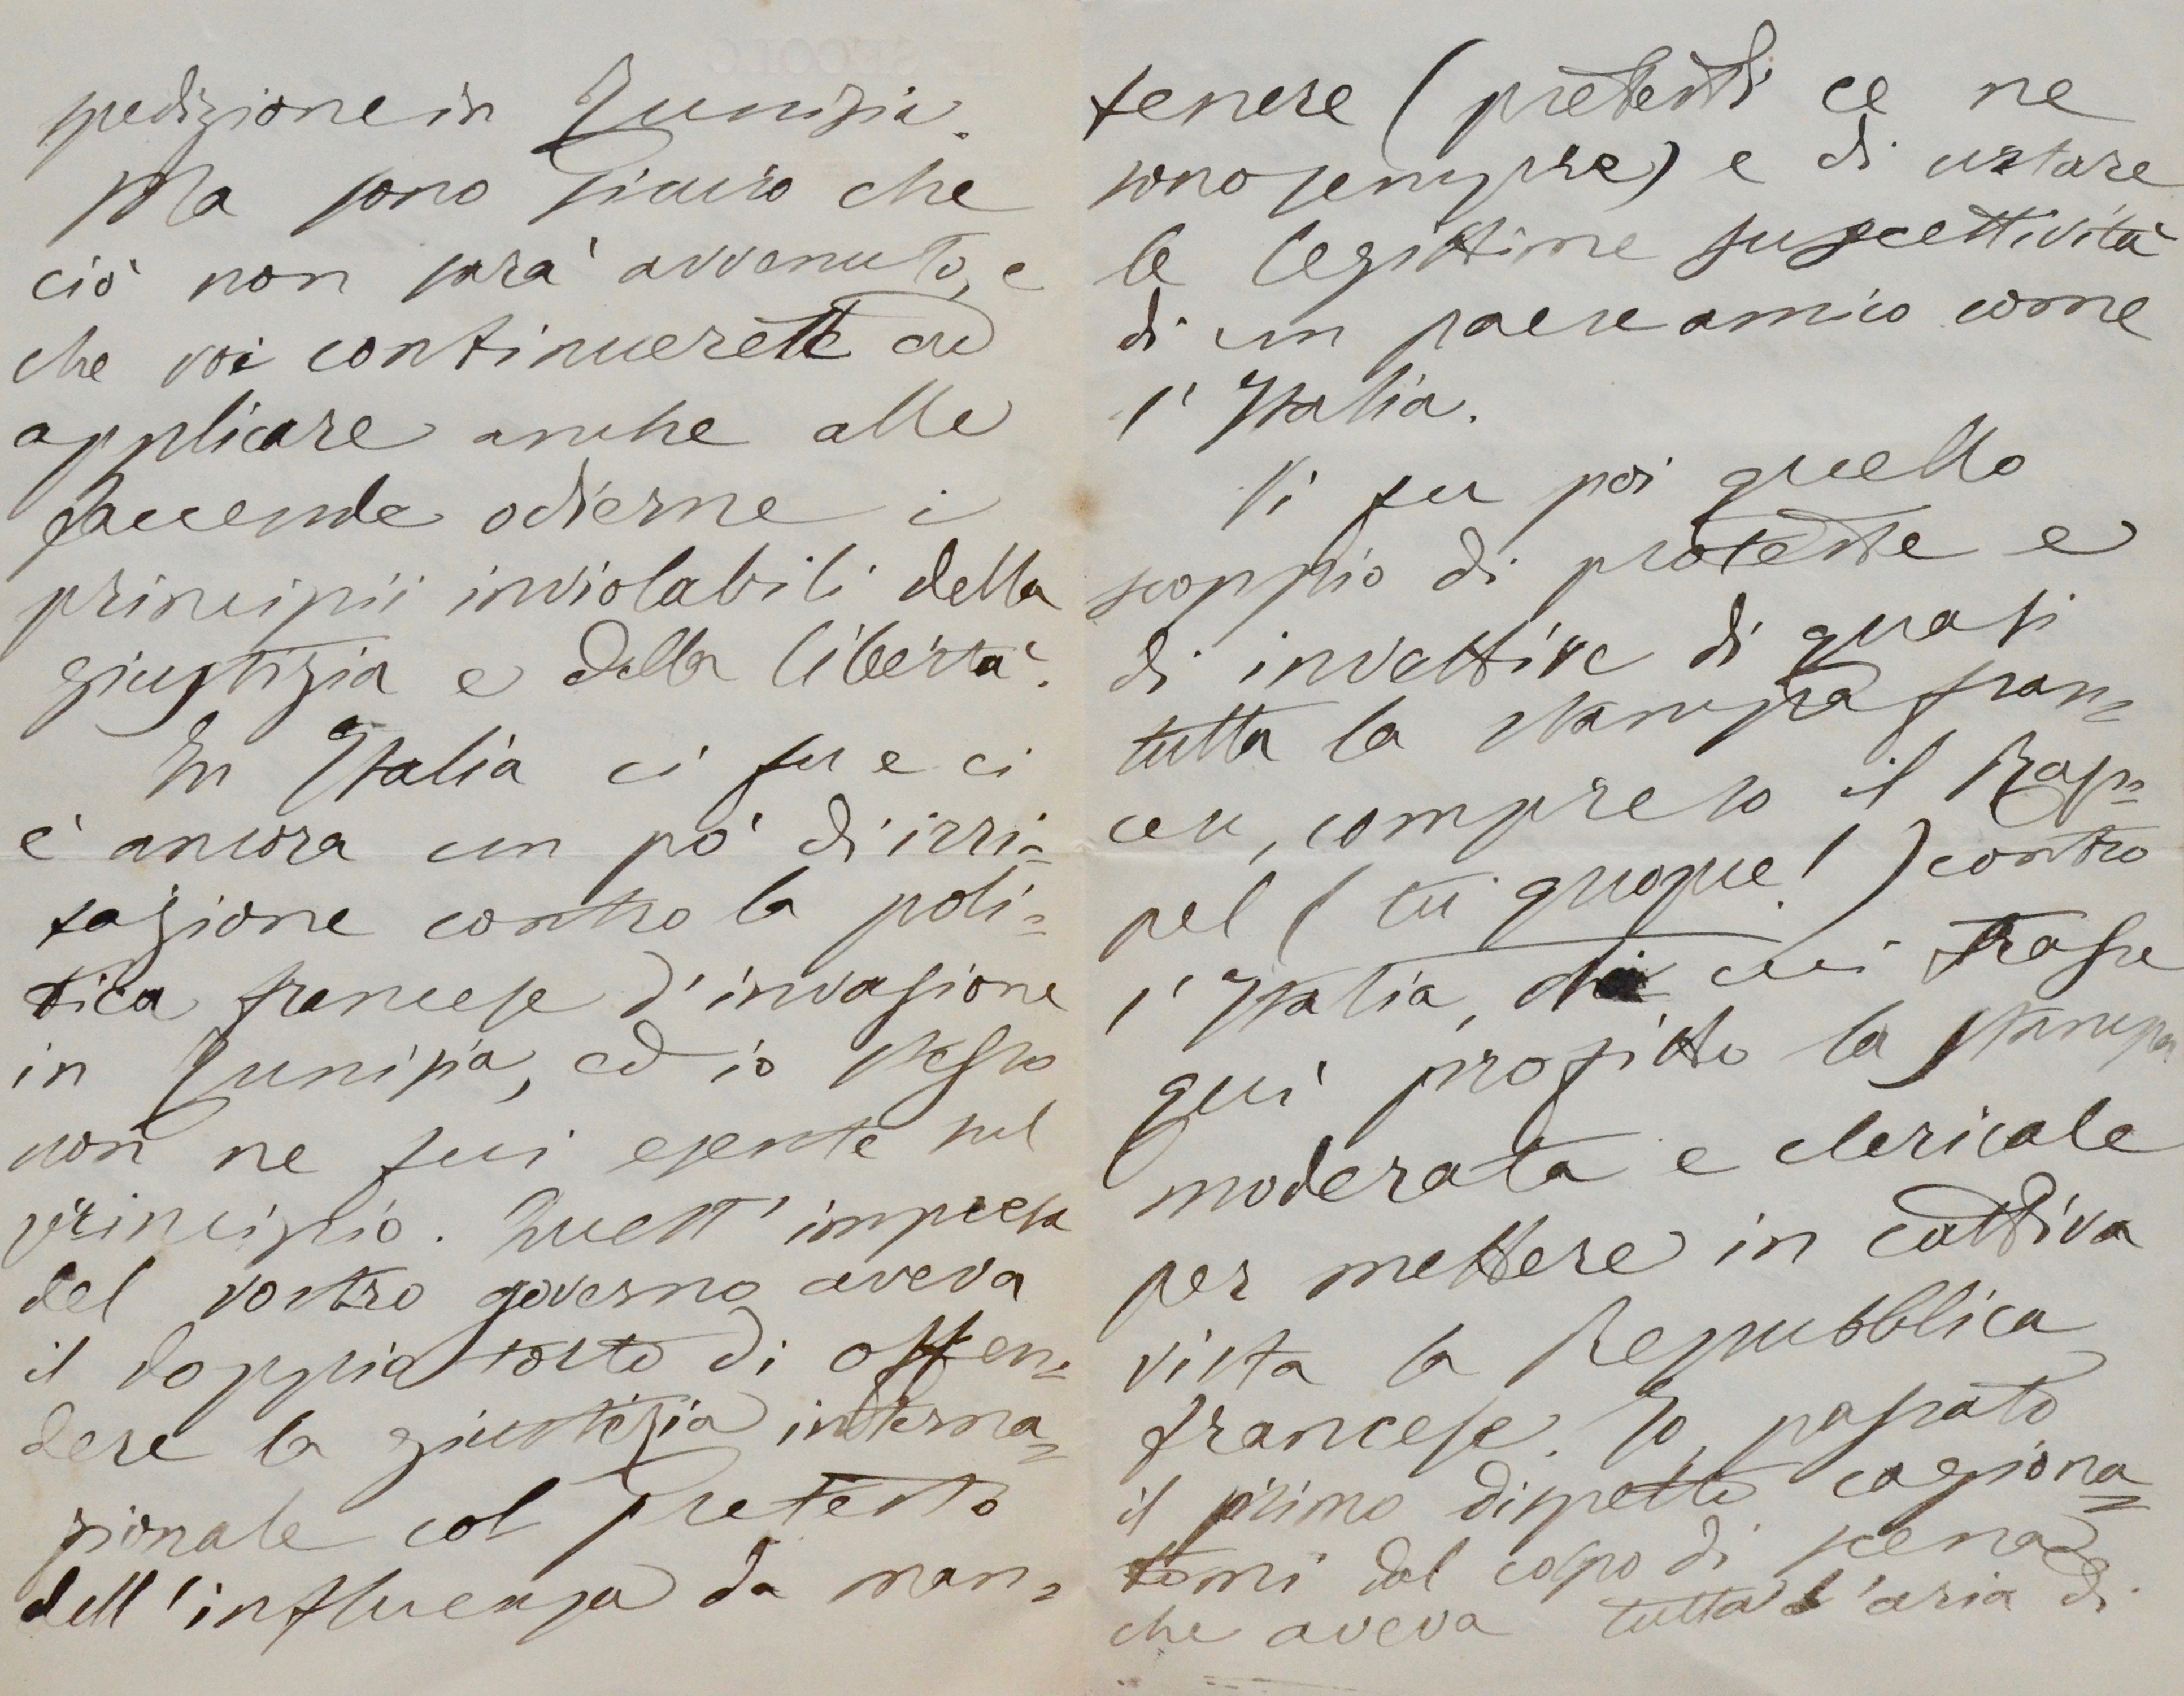 spedizione in Tunisia.
Ma sono sicuro che
ciò non sarà avvenuto, e
che voi continuerete ad
applicare anche alle
faccende odierne i
principii inviolabili della
giustizia e della libertà.
In Italia ci fu e ci
è ancora un pó di irri=
tazione contro la poli=
tica francese d'invasione
in Tunisia, ed io stesso
non ne fui esente sul
principio. Quest'impresa
del vostro governo aveva
il doppio torto di offen=
dere la giustizia interna=
zionale col pretesto
dell'influenza da man=
tenere (pretesti ce ne
sono sempre) e di urtare
le legittime suscettività
di un paese amico come
l'Italia.
Vi fu poi quello
scoppio di proteste e
di invettive di quasi
tutta la stampa fran=
cese, compreso il Rap=
pel (tu quoque!) contro
l'Italia, di cui trasse
qui profitto la stampa
moderata e clericale
per mettere in cattiva
vista la Repubblica
francese. Io, passato
il primo dispetto cagiona=
tomi dal colpo di scena
che aveva tutta l'aria di